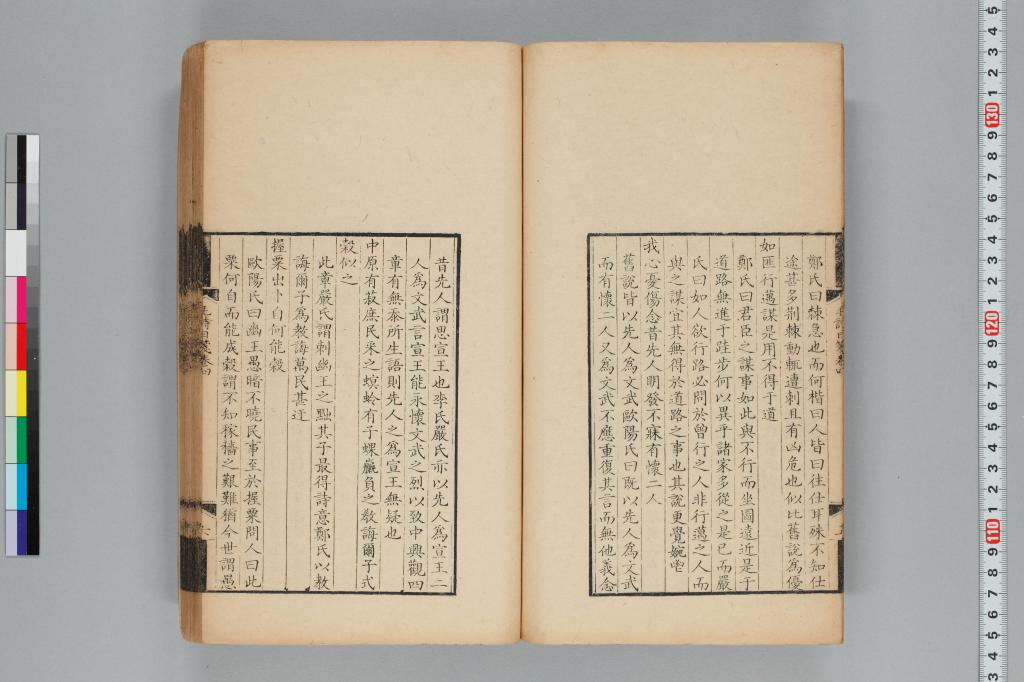 鄭氏曰棘急也而何楷曰人皆曰往仕耳殊不知仕
途甚多荆棘動輒遭刺且有凶危也似比舊說為優
如匪行邁謀是用不得于道
鄭氏曰君臣之謀事如此與不行而坐圖遠近是于
道路無進于跬步何以異乎諸家多從之是已而嚴
氏曰如人欲行路必問於曾行之人非行邁之人而
與之謀宜其無得於道路之事也其說更覺婉
我心憂傷念昔先人明發不寐有懷二人
舊說皆以先人為文武歐陽氏曰既以先人為文武
而有懷二人又為文武不應重復其言而無他義念
昔先人謂思宣王也李氏嚴氏亦以先人為宣王二
人為文武言宣王能永懷文武之烈以致中興觀四
章有無忝所生語則先人之為宣王無疑也
中原有菽庶民采之螟蛉有子蜾蠃負之教誨爾子式
穀似之
此章嚴氏謂刺幽王之黜其子最得詩意鄭氏以教
誨爾子為教誨萬民甚迂
握粟出卜自何能穀
歐陽氏曰幽王愚暗不曉民事至於握粟問人曰此
粟何自而能成穀謂不知稼穡之艱難猶今世謂愚